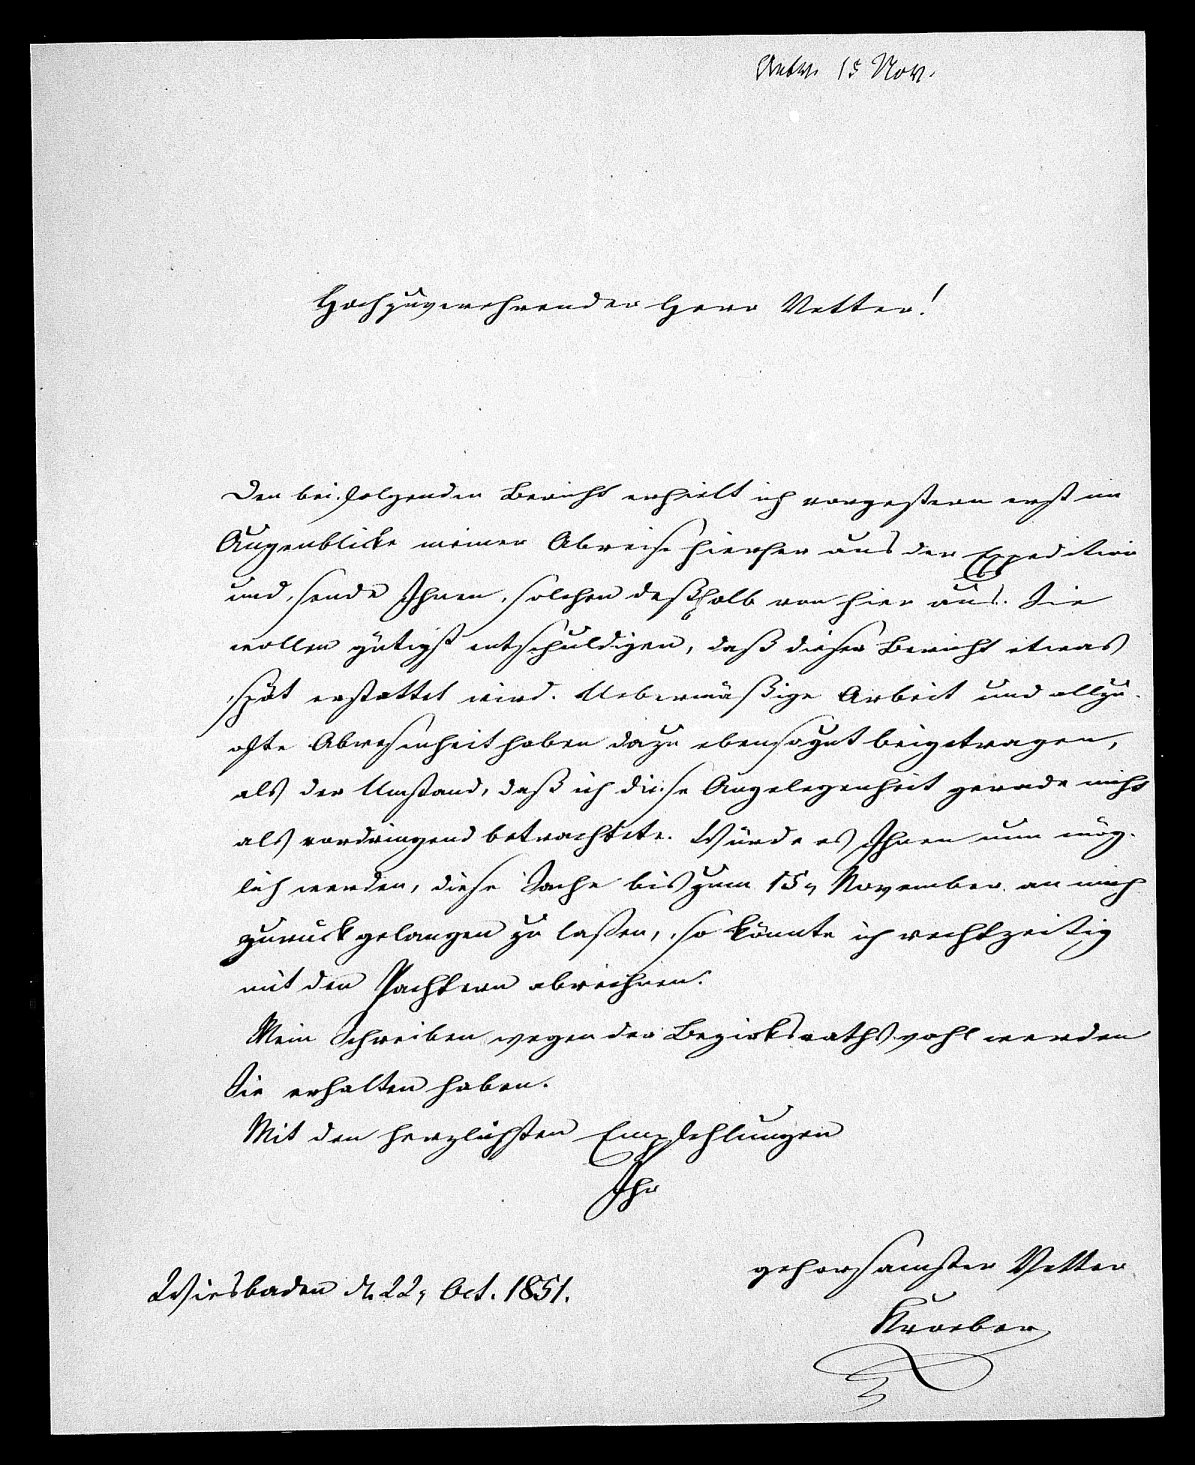 Antw. 15 Nov.
Hochzuverehrender Herr Vetter!
Den bei folgenden Bericht erhielt ich vorgestern erst im
Augenblicke meiner Abreise hierher aus der Expedition
und sende Ihnen solchen deßhalb von hier aus. Sie
wollen gütigst entschuldigen, daß dieser Bericht etwas
spät erstattet wird. Uebermäßige Arbeit und allzu-
ofte Abwesenheit haben dazu ebensogut beigetragen,
als der Umstand, daß ich diese Angelegenheit gerade nicht
als vordringend betrachtete. Würde es Ihnen nun mög-
lich werden, diese Sache bis zum 15n November an mich
zurück gelangen zu laßen, so könnte ich rechtzeitig
mit den Pachtern abrechnen.
Mein Schreiben wegen der Bezirksrathswahl werden
Sie erhalten haben.
Mit den herzlichsten Empfehlungen
Ihr
gehorsamster Vetter
Wiesbaden d. 22n Oct. 1851.
Kroeber